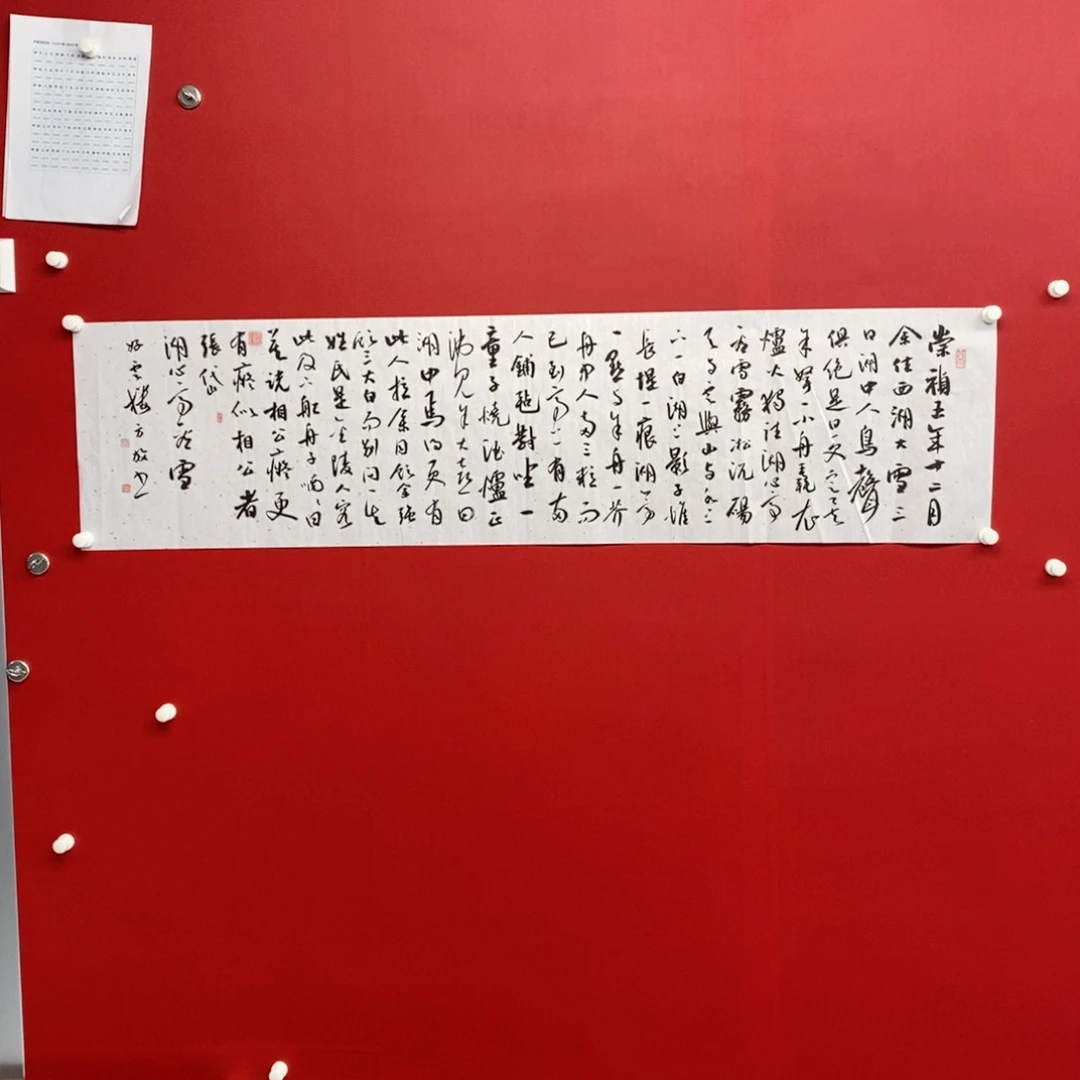 崇禎五年十二月
余住西湖大雪三
日湖中人鳥聲
俱絕是日更定矣
余拏一小舟毳衣
爐火獨往湖心亭
看雪霧凇沆碭
天與雲與山與水上
下一白湖上影子惟
長堤一痕湖心亭
一點與余舟一芥
舟中人兩三粒而
已到亭上有兩
人鋪氈對坐一
童子燒酒爐正
沸見余大喜曰
湖中焉得更有
此人拉余同飲余強
飲三大白而別問其
姓氏是金陵人客
此及下船舟子喃喃曰
莫說相公癡更
有癡似相公者
張岱
湖心亭看雪
好雲樓方